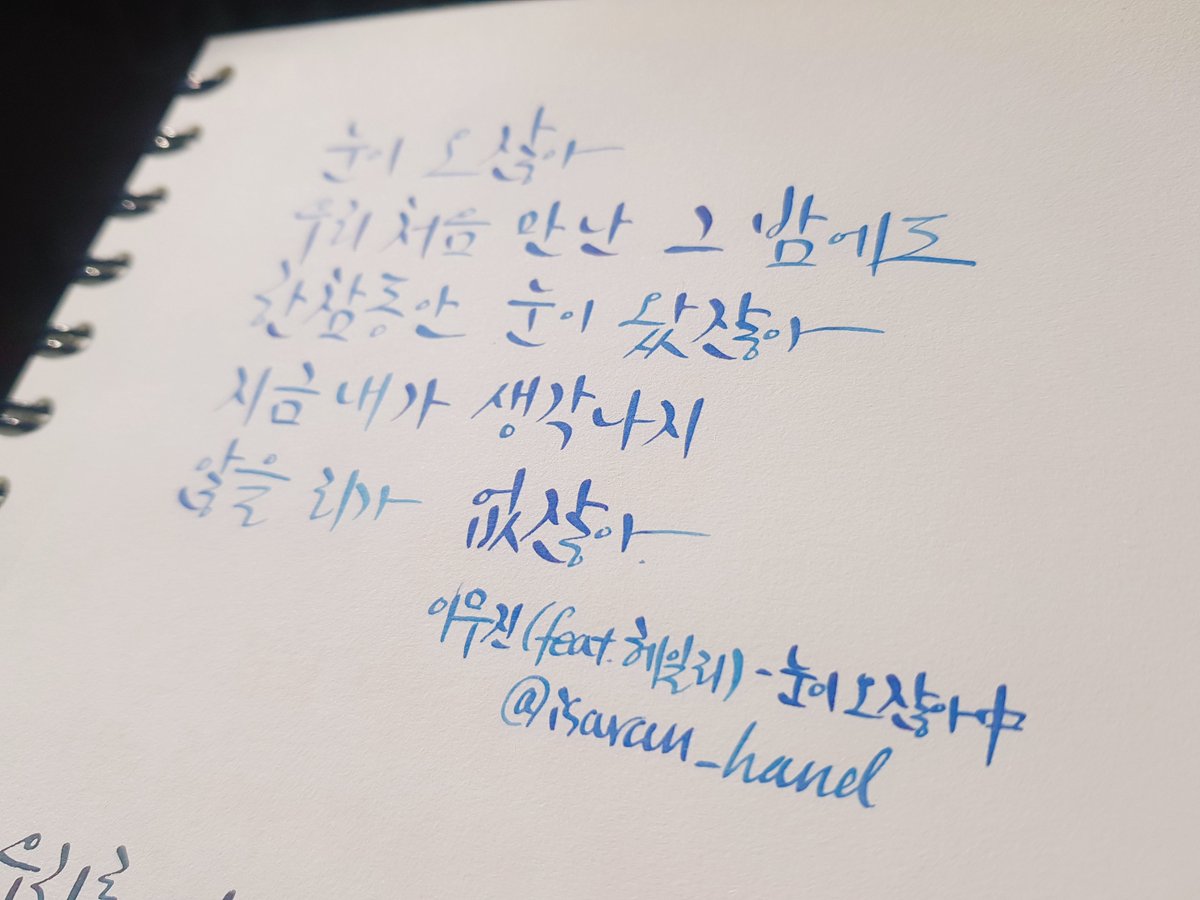 눈이 오잖아
우리 처음 만난 그 밤에도
한참동안 눈이 왔잖아
지금 내가 생각나지
않을 리가 없잖아
이무진(feat.헤일리)-눈이 오잖아 中
@isaran_hand